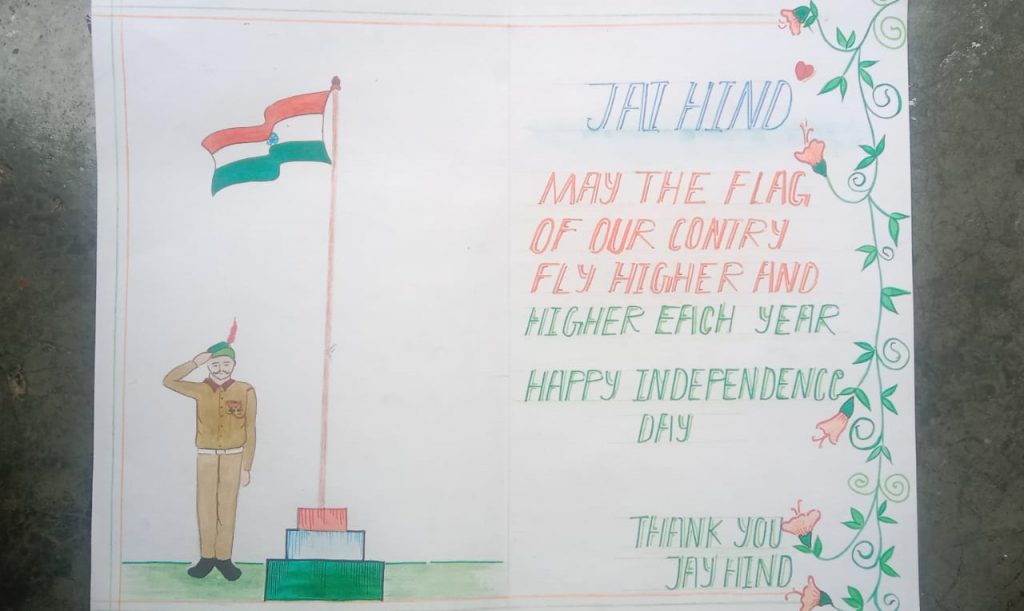 JAI HIND
MAY THE FLAG
OF OUR CONTRY
FLY HIGHER AND
HIGHER EACH YEAR
HAPPY INDEPENDENCE
DAY
THANK YOU
JAY HIND